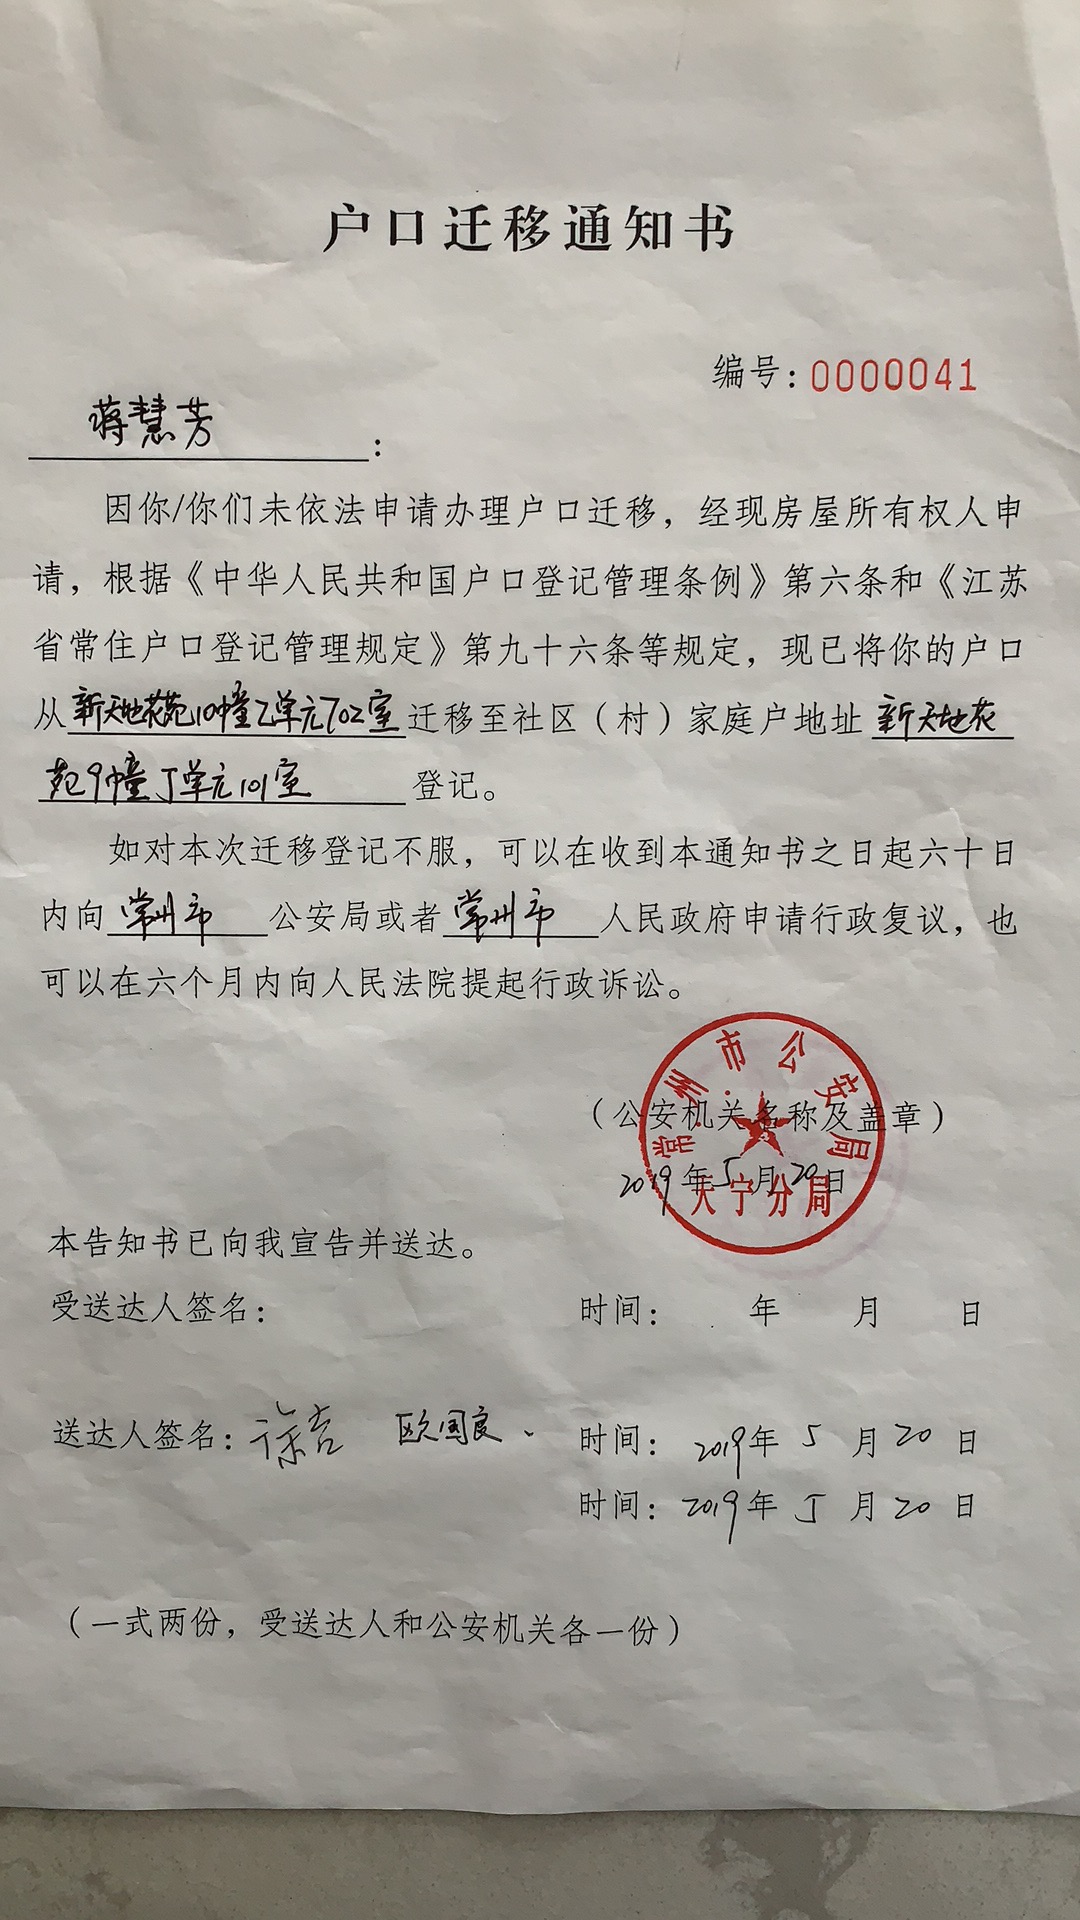 户口迁移通知书
编号：0000041
蒋慧芳：
因你/你们未依法申请办理户口迁移，经现房屋所有权人申
请，根据《中华人民共和国户口登记管理条例》第六条和《江苏
省常住户口登记管理规定》第九十六条等规定，现已将你的户口
从新天地花苑10幢乙单元702室迁移至社区（村）家庭户地址新天地花
苑9幢丁单元101室登记。
如对本次迁移登记不服，可以在收到本通知书之日起六十日
内向常州市公安局或者常州市人民政府申请行政复议，也
可以在六个月内向人民法院提起行政诉讼。
常州市公安局
（公安机关名称及盖章）
2019年5月20日
天宁分局
本告知书已向我宣告并送达。
受送达人签名： 时间： 年 月 日
送达人签名： 欧国良 时间：2019年5月20日
时间：2019年5月20日
（一式两份，受送达人和公安机关各一份）